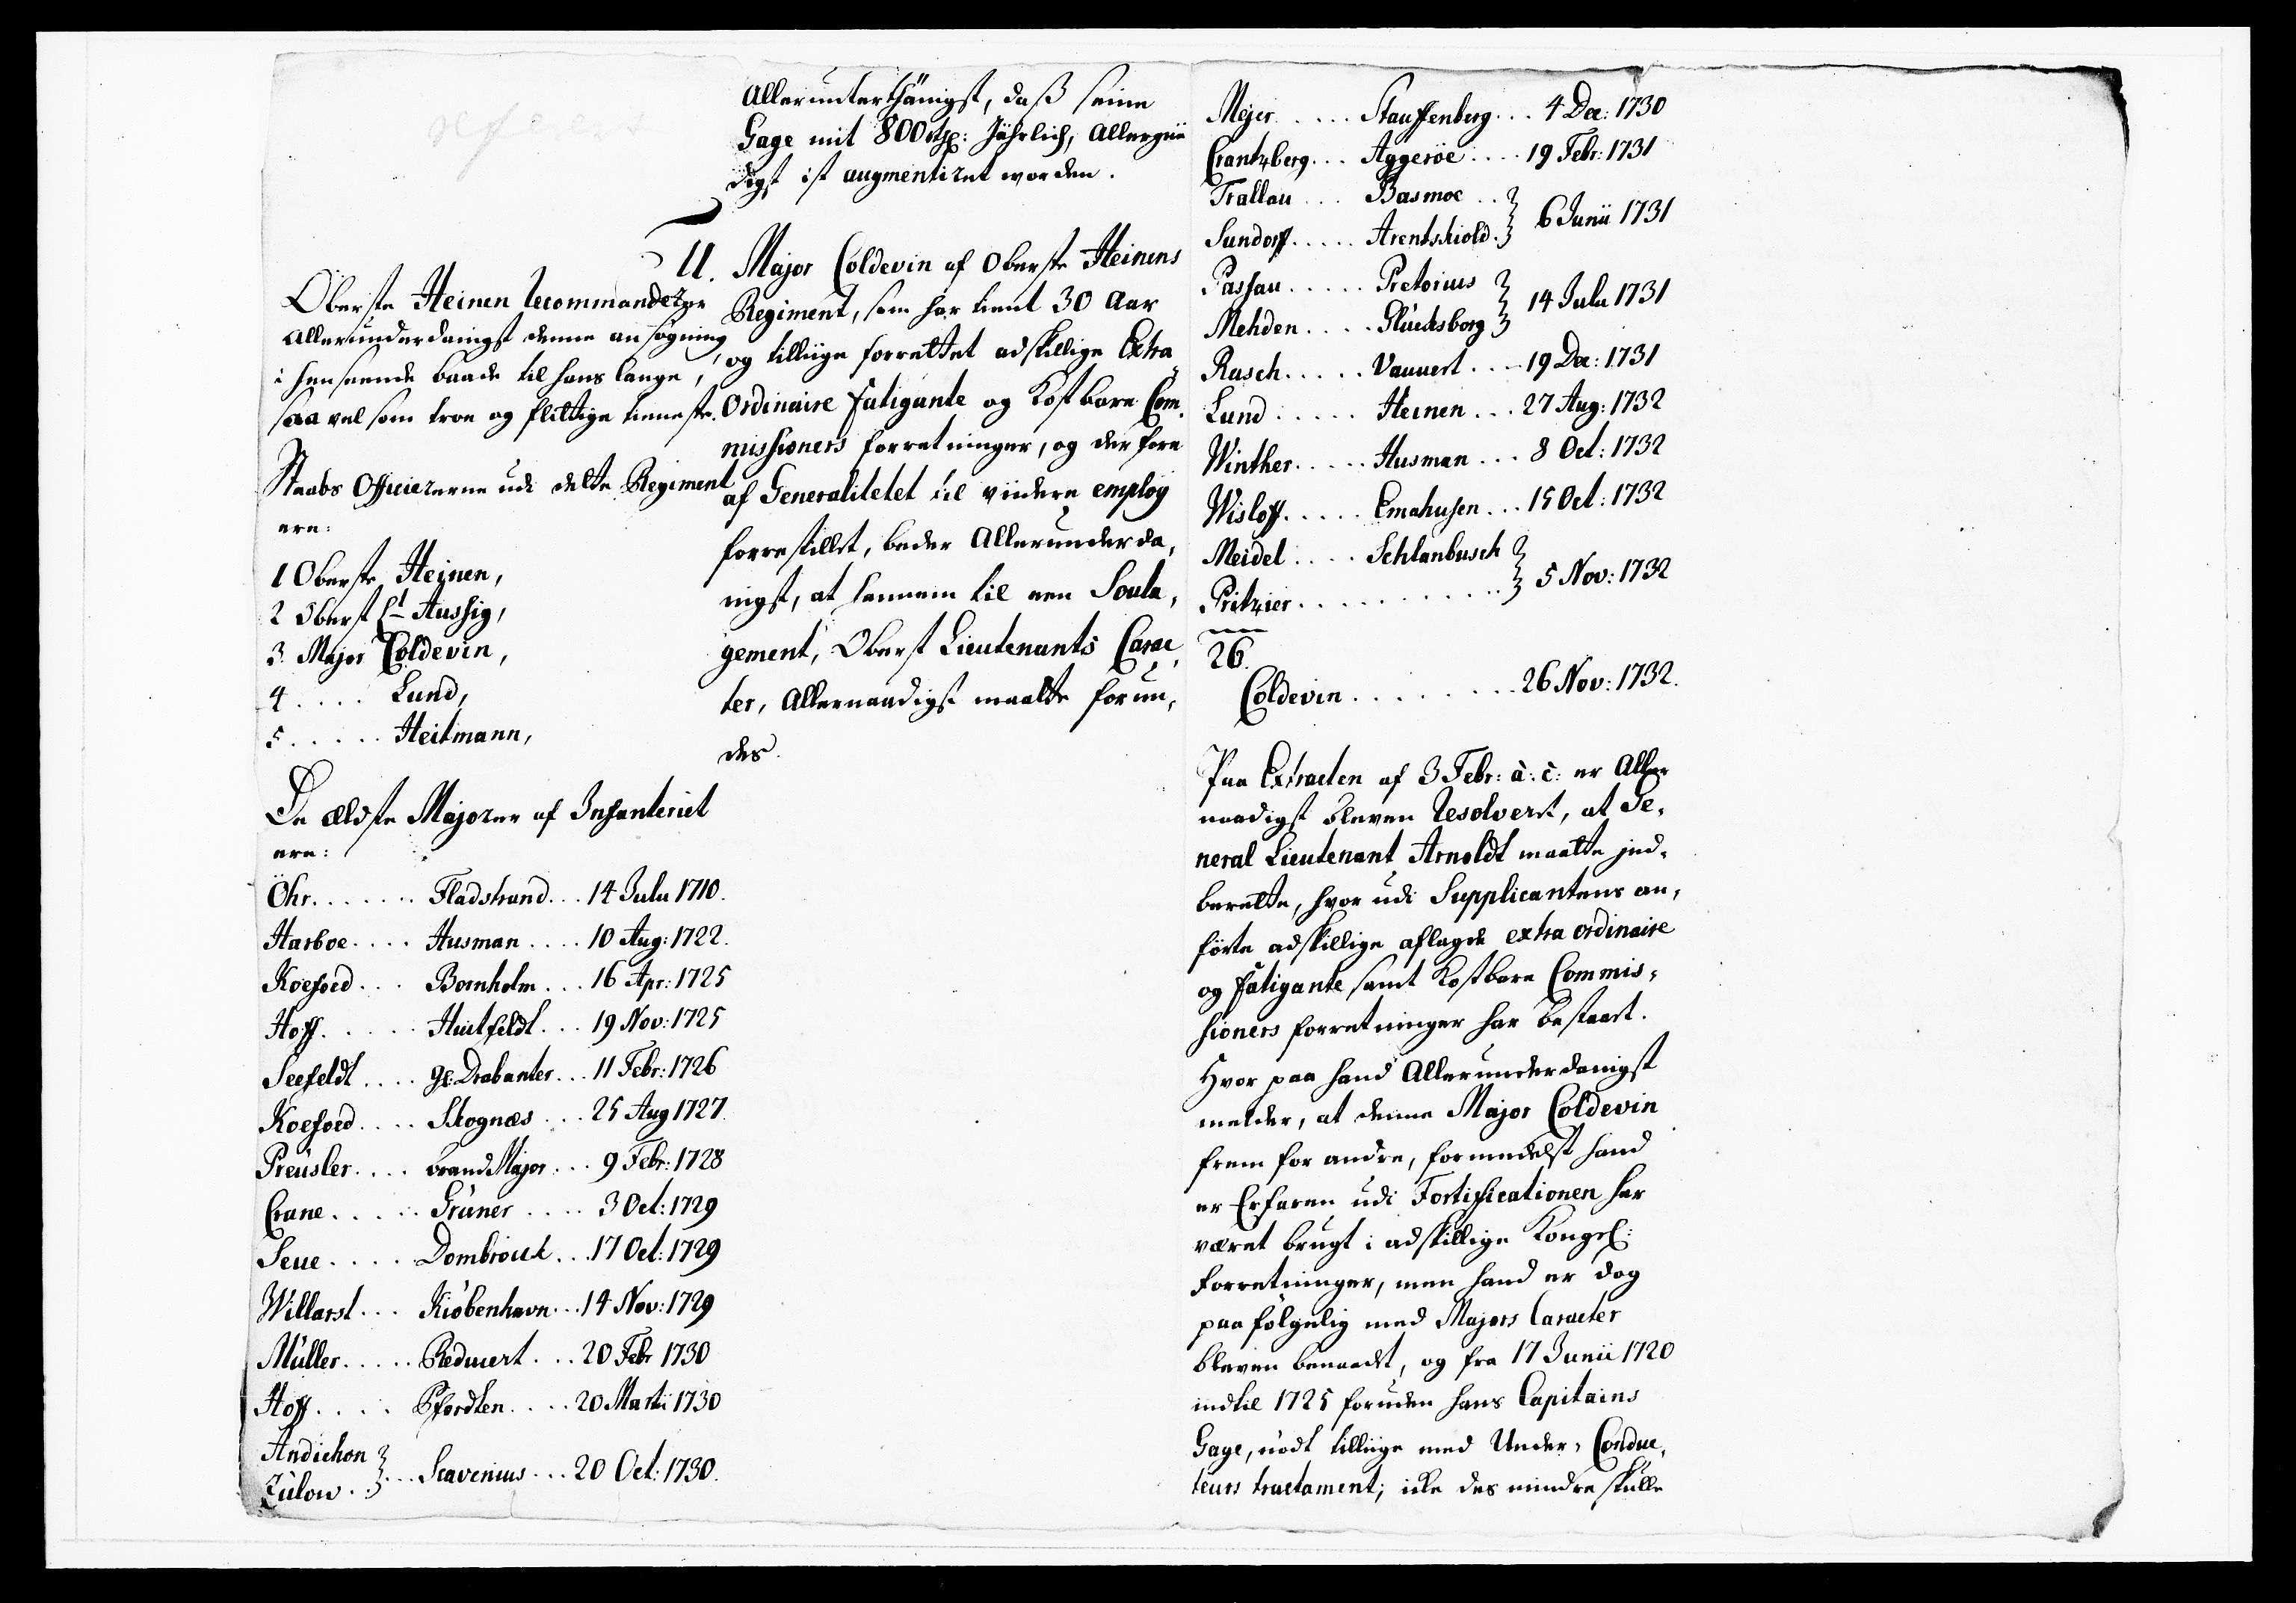 Allerunterthänigst, daß seine
Gage mit 800 Rthr: Jährlich, Allergnä
digst ist augmentiret worden.
U.
Oberste Heinen recommanderer
Allerunderdanigst denne ansøgning
i henseende baade til hans lange,
saa vel som troe og flittige tieneste.
Staabs Officiererne udi dette Regiment
ere:
1 Oberste Heinen,
2 Oberst Lt Aussig,
3 Major Coldevin,
4 .... Lund,
5 ..... Heitmann,
De ældste Majorer af Infanteriet
ere:
Öhr....... Fladstrand... 14 Julii 1710.
Harboe.... Husman.... 10 Aug: 1722.
Koefoed... Bornholm... 16 Apr: 1725
Hoff...... Huitfeldt... 19 Nov: 1725
Seefeldt.... gl: Drabanter... 11 Febr: 1726
Koefoed.... Skognæs... 25 Aug 1727.
Preusler.... brand Major... 9 Febr: 1728
Crane..... Grüner.... 3 Oct: 1729
Seue..... Dombrouk... 17 Oct: 1729
Willarst... Kiöbenhavn... 14 Nov: 1729
Müller..... Reduiert... 20 Febr 1730
Hoff..... Pfordten.... 20 Martii 1730
Andichon
Zülow.. ... Scavenius... 20 Oct: 1730.
Major Coldevin af Oberste Heinens
Regiment, som har tient 30 Aar
og tilliige forrettet adskillige Extra
Ordinaire fatigante og Kostbare Com,
missioners forretninger, og derfore
af Generalitetet til viidere employ
forrestillet, beder Allerunderda,
nigst, at hannem til een Soula,
gement, Oberst Lieutenants Carac,
ter, Allernaadigst maatte forun,
des.
Mejer..... Stauffenberg... 4 Dec: 1730
Crantzberg... Aggeröe.... 19 Febr: 1731
Trallau... Basmoe..
Sundorff..... Arentskiold. 6 Junii 1731
Passau..... Pretorius
Mehden.... Glücksborg 14 Julii 1731
Rasch..... Vauuert... 19 Dec: 1731
Lund..... Heinen... 27 Aug: 1732
Winther..... Husman... 8 Oct: 1732
Wisloff..... Emahusen... 15 Oct: 1732
Meidel.... Schlanbusch
Pritzier........... 5 Nov: 1732
26.
Coldevin........ 26 Nov: 1732.
Paa Extracten af 3 Febr: a: c: er Aller
naadigst bleven resolvert, at Ge,
neral Lieutenant Arnoldt maatte ind,
berette, hvor udi Supplicantens an,
førte adskillige aflagde extra ordinaire
og fatigante samt Kostbare Commis,
sioners forretninger har bestaaet.
Hvor paa hand Allerunderdanigst
melder, at denne Major Coldevin
frem for andre, formedelst hand
er Erfaren udi Fortificationen har
været brugt i adskillige Kongel:
forretninger, men hand er dog
paa følgelig med Majors Caracter
bleven benaadet, og fra 17 Junii 1720
indtil 1725 foruden hans Capitains
Gage, nødt tilliige med Under, Conduc,
teurs tractament; icke des mindre skulle